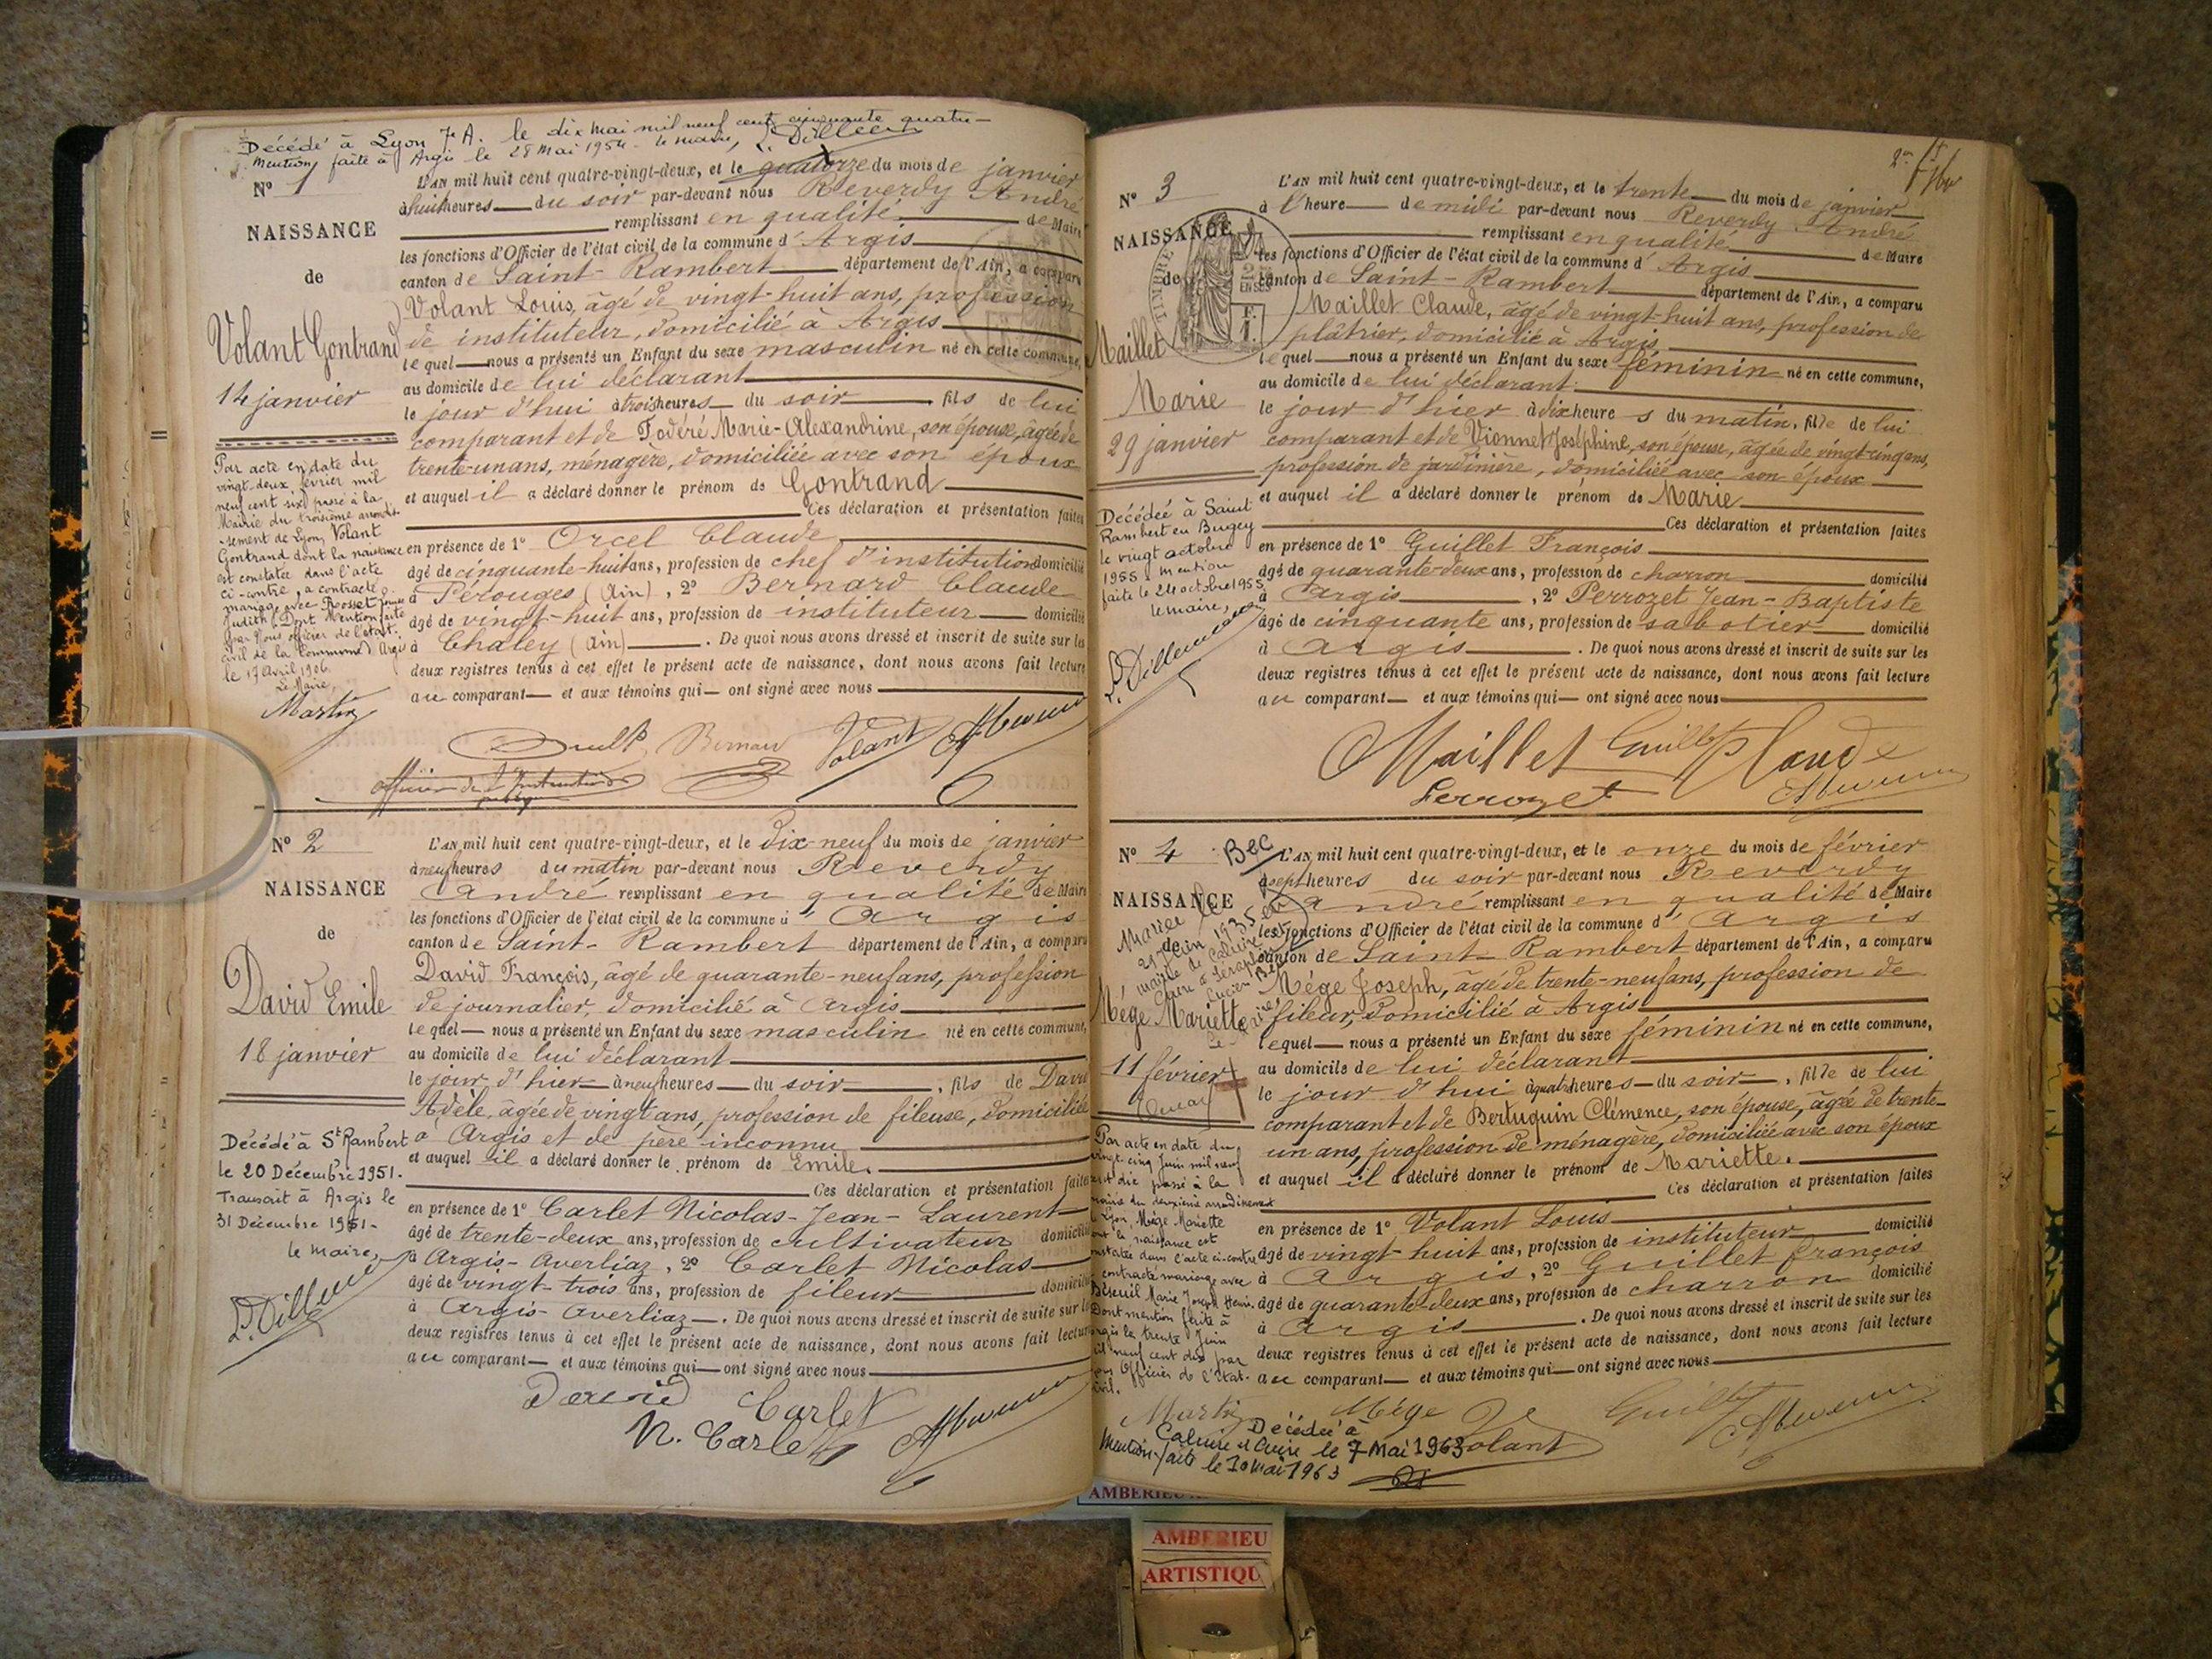 Décédé à Lyon 7e A. le dix mai mil neuf cent cinquante quatre -
Mention faite à Argis le 28 Mai 1954 - le maire,
N° 1
NAISSANCE
de
Volant Gontrand
14 janvier
L'AN mil huit cent quatre-vingt-deux, et le quatorze du mois de janvier
à huit heures du soir par-devant nous Reverdy André
remplissant en qualité de Maire
les fonctions d'Officier de l'état civil de la commune d'Argis
canton de Saint-Rambert département de l'Ain, a comparu
Volant Louis, âgé de vingt-huit ans, profession
de instituteur, domicilié à Argis
lequel nous a présenté un Enfant du sexe masculin né en cette commune,
au domicile de lui déclarant
le jour d'hui à trois heures du soir, fils de lui
comparant et de Fodéré Marie-Alexandrine, son épouse, âgée de
trente-un ans, ménagère, domiciliée avec son époux
et auquel il a déclaré donner le prénom de Gontrand
Ces déclaration et présentation faites
en présence de 1° Orcel Claude
âgé de cinquante-huit ans, profession de chef d'institution domicilié
à Pérouges (Ain), 2° Bernard Claude
âgé de vingt-huit ans, profession de instituteur domicilié
à Chaley (Ain). De quoi nous avons dressé et inscrit de suite sur les
deux registres tenus à cet effet le présent acte de naissance, dont nous avons fait lecture
au comparant et aux témoins qui ont signé avec nous
Par acte en date du
vingt-deux février mil
neuf cent six passé à la
Mairie du troisième arrondis-
sement de Lyon, Volant
Gontrand dont la naissance
est constatée dans l'acte
ci-contre, a contracté
mariage avec Rosset
Judith. Dont Mention faite
par Nous officier de l'état-
civil de la Commune d'Argis
le 17 Avril 1906
Le Maire,
Martin
Bernard Volant
Officier de l'Instruction
N° 2
NAISSANCE
de
David Emile
18 janvier
L'AN mil huit cent quatre-vingt-deux, et le dix-neuf du mois de janvier
à neuf heures du matin par-devant nous Reverdy
André remplissant en qualité de Maire
les fonctions d'Officier de l'état civil de la commune d'Argis
canton de Saint-Rambert département de l'Ain, a comparu
David François, âgé de quarante-neuf ans, profession
de journalier, domicilié à Argis
lequel nous a présenté un Enfant du sexe masculin né en cette commune,
au domicile de lui déclarant
le jour d'hier à neuf heures du soir, fils de David
Adèle, âgée de vingt ans, profession de fileuse, domiciliée
à Argis et de père inconnu
et auquel il a déclaré donner le prénom de Emile.
Ces déclaration et présentation faites
en présence de 1° Carlet Nicolas-Jean-Laurent
âgé de trente-deux ans, profession de cultivateur domicilié
à Argis-Averliaz, 2° Carlet Nicolas
âgé de vingt-trois ans, profession de fileur domicilié
à Argis-Averliaz. De quoi nous avons dressé et inscrit de suite sur les
deux registres tenus à cet effet le présent acte de naissance, dont nous avons fait lecture
au comparant et aux témoins qui ont signé avec nous
Décédé à St Rambert
le 20 Décembre 1951.
Transcrit à Argis le
31 Décembre 1951 -
le maire,
David Carlet
N. Carlet
N° 3
NAISSANCE
de
Maillet
Marie
29 janvier
TIMBRE
L'AN mil huit cent quatre-vingt-deux, et le trente du mois de janvier
à l'heure de midi par-devant nous Reverdy André
remplissant en qualité de Maire
les fonctions d'Officier de l'état civil de la commune d'Argis
canton de Saint-Rambert département de l'Ain, a comparu
Maillet Claude, âgé de vingt-huit ans, profession de
plâtrier, domicilié à Argis
lequel nous a présenté un Enfant du sexe féminin né en cette commune,
au domicile de lui déclarant
le jour d'hier à dix heures du matin, fille de lui
comparant et de Vionnet Joséphine, son épouse, âgée de vingt-cinq ans,
profession de jardinière, domiciliée avec son époux
et auquel il a déclaré donner le prénom de Marie
Ces déclaration et présentation faites
en présence de 1° Guillet François
âgé de quarante-deux ans, profession de charron domicilié
à Argis, 2° Perrozet Jean-Baptiste
âgé de cinquante ans, profession de sabotier domicilié
à Argis. De quoi nous avons dressé et inscrit de suite sur les
deux registres tenus à cet effet le présent acte de naissance, dont nous avons fait lecture
au comparant et aux témoins qui ont signé avec nous
Décédée à Saint
Rambert en Bugey
le vingt octobre
1955. Mention
faite le 24 octobre 1955
le maire,
Maillet Claude Guillet
Perrozet
N° 4 Bec
NAISSANCE
de
Mège Mariette
11 février
L'AN mil huit cent quatre-vingt-deux, et le onze du mois de février
à sept heures du soir par-devant nous Reverdy
André remplissant en qualité de Maire
les fonctions d'Officier de l'état civil de la commune d'Argis
canton de Saint-Rambert département de l'Ain, a comparu
Mège Joseph, âgé de trente-neuf ans, profession de
fileur, domicilié à Argis
lequel nous a présenté un Enfant du sexe féminin né en cette commune,
au domicile de lui déclarant
le jour d'hui à quatre heures du soir, fille de lui
comparant et de Bertuquin Clémence, son épouse, âgée de trente-
un ans, profession de ménagère, domiciliée avec son époux
et auquel il a déclaré donner le prénom de Mariette.
Ces déclaration et présentation faites
en présence de 1° Volant Louis
âgé de vingt-huit ans, profession de instituteur domicilié
à Argis, 2° Guillet François
âgé de quarante-deux ans, profession de charron domicilié
à Argis. De quoi nous avons dressé et inscrit de suite sur les
deux registres tenus à cet effet le présent acte de naissance, dont nous avons fait lecture
au comparant et aux témoins qui ont signé avec nous
Par acte en date du
vingt-cinq Juin mil neuf
cent dix passé à la
mairie du deuxième arrondissement
Lyon, Mège Mariette
dont la naissance est
constatée dans l'acte ci-contre
contracté mariage avec
Marie Joseph Henri.
Dont mention faite à
Argis le trente Juin
mil neuf cent dix par
nous Officier de l'Etat-
civil.
Martin Mège Volant Guillet
Décédée à
Caluire et Cuire le 7 Mai 1963
Mention faite le 10 mai 1963
AMBERIEU
AMBERIEU
ARTISTIQU